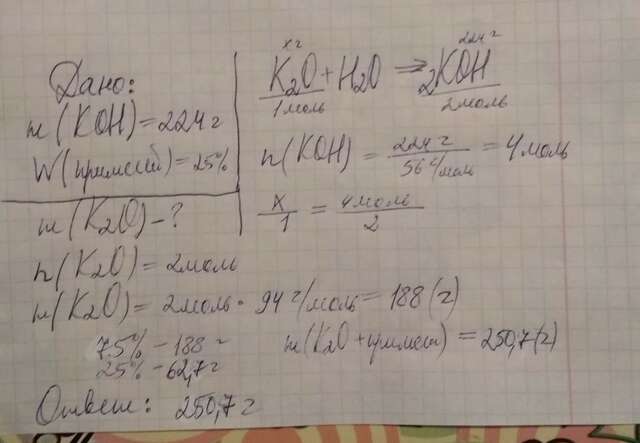 Дано:
m(KOH) = 224 г
W(примесей) = 25%
m(K₂O) - ?
x г
224 г
K₂O + H₂O ⇒ 2KOH
1 моль
2 моль
n(KOH) = 224 г / 56 г/моль = 4 моль
x/1 = 4 моль/2
n(K₂O) = 2 моль
m(K₂O) = 2 моль · 94 г/моль = 188 (г)
75% - 188 г
25% - 62,7 г
m(K₂O + примеси) = 250,7 (г)
Ответ: 250,7 г